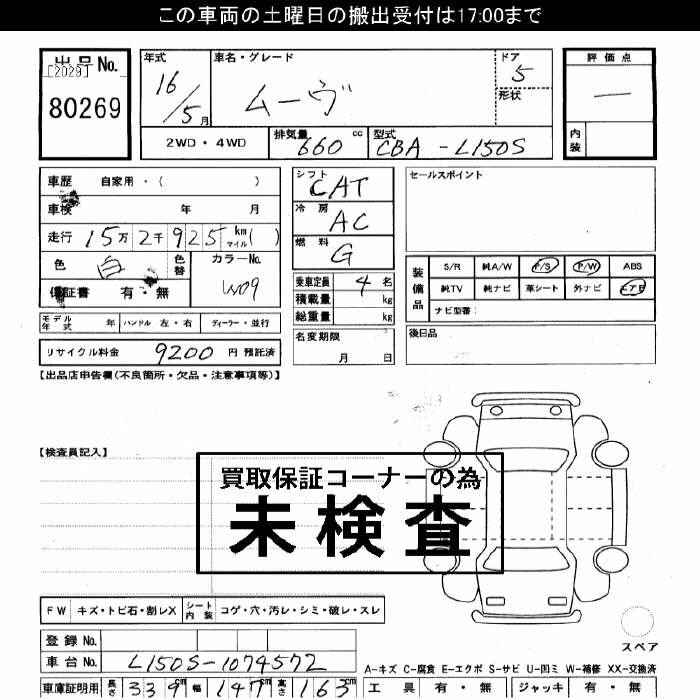 この車両の土曜日の搬出受付は17:00まで
出品No.
[2029]
80269
年式
16/5月
車名・グレード
ムーヴ
ドア
5
形状
2WD・4WD
排気量 660 cc
型式 CBA-L150S
評価点
—
内装
車歴 自家用・( )
車検 年 月
走行 15万2千925 km マイル( )
色 白
色替
カラーNo.
W09
保証書 有・無
シフト
CAT
冷房
AC
燃料
G
乗車定員 4 名
積載量 kg
総重量 kg
セールスポイント
装備品
S/R 純A/W P/S P/W ABS
純TV 純ナビ 革シート 外ナビ エアB
ナビ型番:
モデル年式 年 ハンドル 左・右 ディーラー・並行
名変期限
月 日
後日品
リサイクル料金 9200 円 預託済
【出品店申告欄(不良箇所・欠品・注意事項等)】
【検査員記入】
買取保証コーナーの為
未検査
FW キズ・トビ石・割レX シート内装 コゲ・穴・汚レ・シミ・破レ・スレ
スペア
登録No.
車台No. L150S-1074572
A-キズ C-腐食 E-エクボ S-サビ U-凹ミ W-補修 XX-交換済
車庫証明用 長さ 339cm 幅 147cm 高さ 163cm
工具 有・無 ジャッキ 有・無